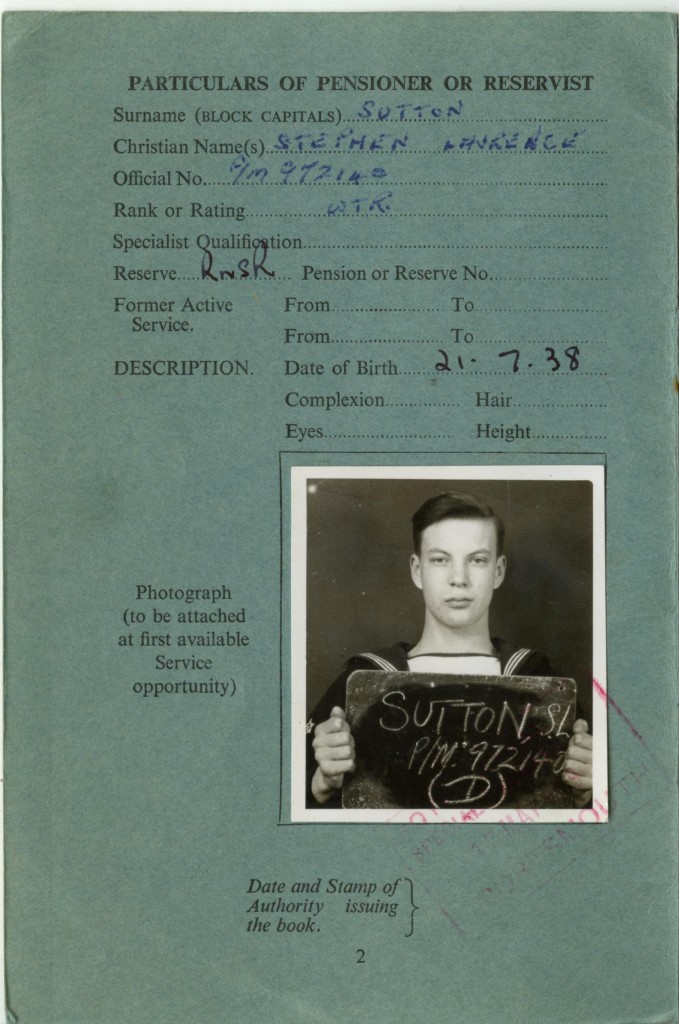 PARTICULARS OF PENSIONER OR RESERVIST
Surname (BLOCK CAPITALS) SUTTON
Christian Name(s) STEPHEN LAURENCE
Official No. P/M 972140
Rank or Rating WTR.
Specialist Qualification
Reserve RNSR Pension or Reserve No.
Former Active Service. From To
From To
DESCRIPTION. Date of Birth 21. 7. 38
Complexion Hair
Eyes Height
Photograph
(to be attached
at first available
Service
opportunity)
SUTTON, SL
P/M: 972140
(D)
MAR
PORTSMOUTH
Date and Stamp of
Authority issuing
the book.
2